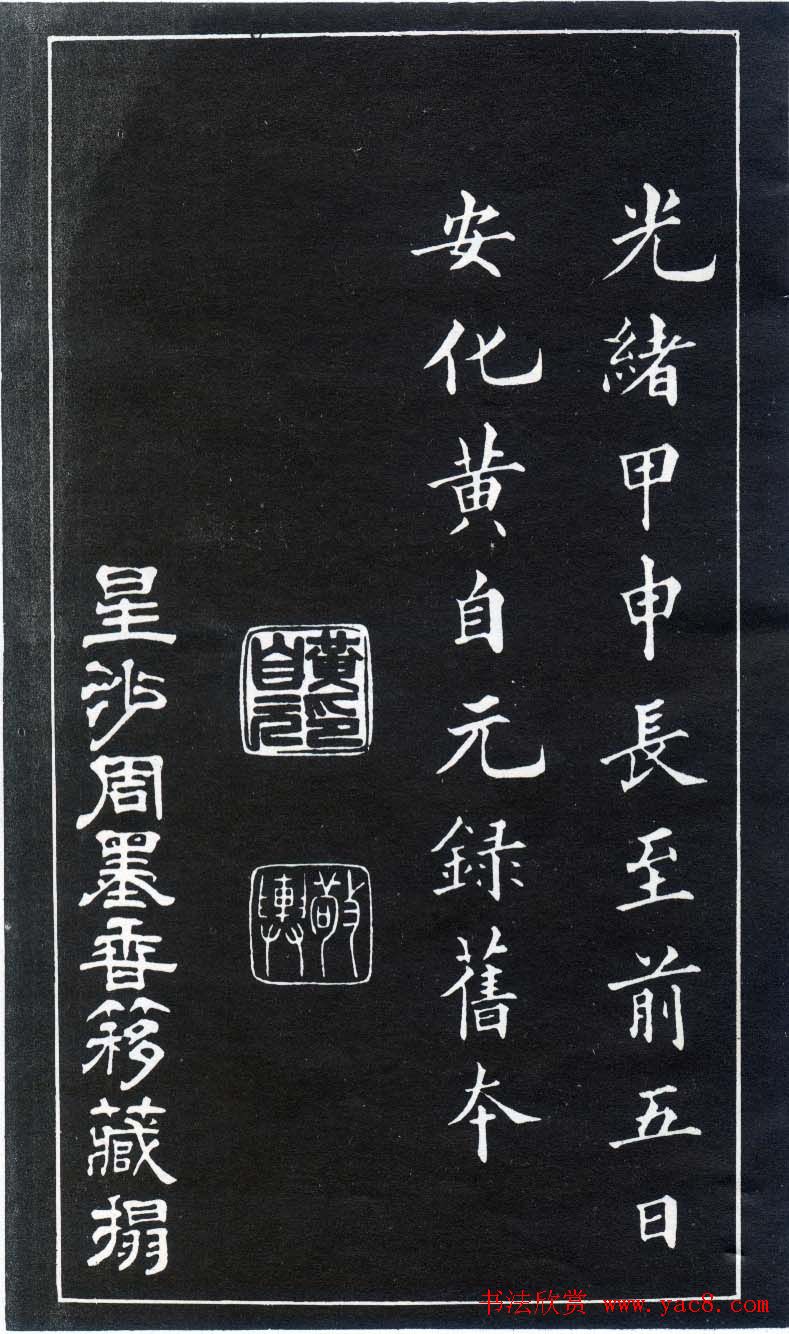 光緒甲申長至前五日
安化黄自元録舊本
黄自元印
敬輿
星沙周墨香簃藏搨
书法欣赏 www.yac8.com